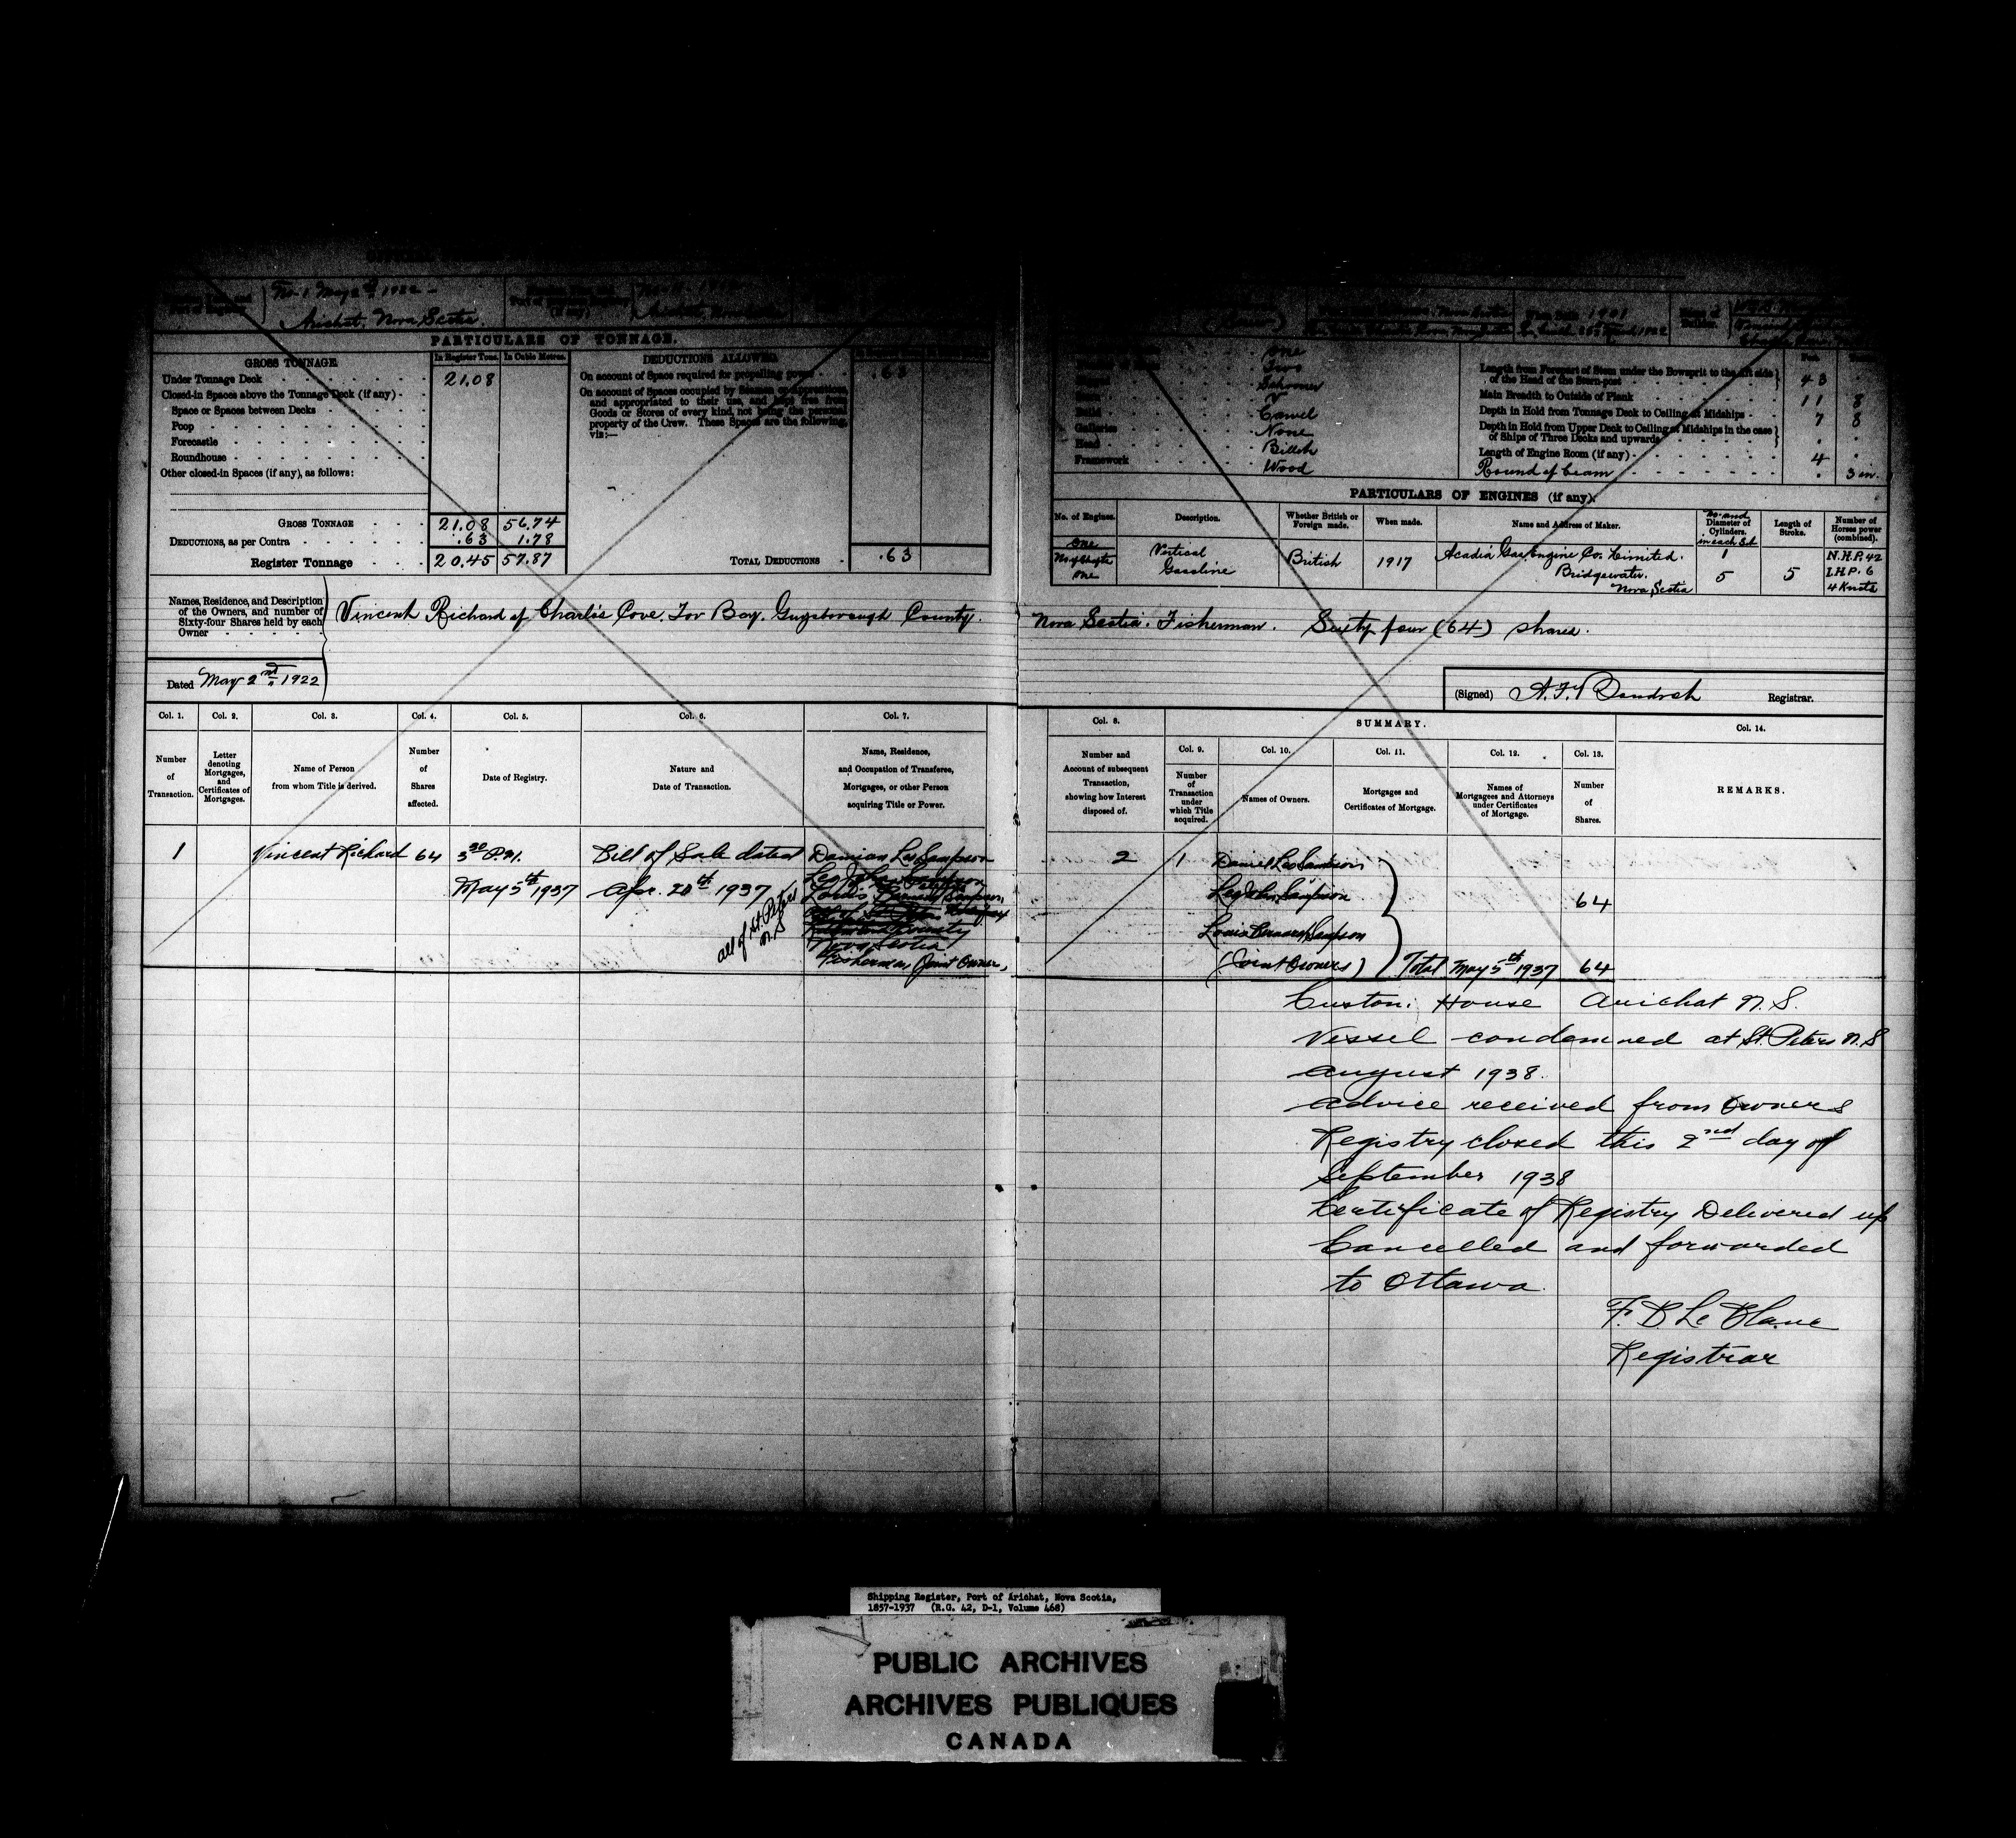 No. 1 May 2nd 1922 -
Arichat, Nova Scotia
PARTICULARS OF TONNAGE.
GROSS TONNAGE
In Register Tons.
In Cubic Metres.
Under Tonnage Deck
21.08
Closed-in Spaces above the Tonnage Deck (if any)
Space or Spaces between Decks
Poop
Forecastle
Roundhouse
Other closed-in Spaces (if any), as follows:
GROSS TONNAGE
21.08
56.74
DEDUCTIONS, as per Contra
.63
1.78
Register Tonnage
20.45
57.87
DEDUCTIONS ALLOWED
On account of Space required for propelling power
.63
On account of Spaces occupied by Seamen or apprentices,
and appropriated to their use, and kept free from
Goods or Stores of every kind, not being the personal
property of the Crew. These Spaces are the following,
viz:—
TOTAL DEDUCTIONS
.63
1901
One
Two
Schooner
Build
Carvel
Galleries
None
Head
Billet
Framework
Wood
Length from Forepart of Stem under the Bowsprit to the Aft side
of the Head of the Stern-post
43
Main Breadth to Outside of Plank
11 8
Depth in Hold from Tonnage Deck to Ceiling at Midships
7 8
Depth in Hold from Upper Deck to Ceiling at Midships in the case
of Ships of Three Decks and upwards
Length of Engine Room (if any)
4
Round of beam
3 in.
PARTICULARS OF ENGINES (if any).
No. of Engines.
Description.
Whether British or
Foreign made.
When made.
Name and Address of Maker.
No. and
Diameter of
Cylinders.
in each Set
Length of
Stroke.
Number of
Horses power
(combined).
One
No of Shafts
One
Vertical
Gasoline
British
1917
Acadia Gas Engine Co. Limited.
Bridgewater.
Nova Scotia
1
5
5
N.H.P. 42
I.H.P. 6
4 Knots
Names, Residence, and Description
of the Owners, and number of
Sixty-four Shares held by each
Owner
Vincent Richard of Charlie's Cove, Tor Bay. Guysborough County.
Nova Scotia. Fisherman. Sixty four (64) shares.
Dated May 2nd 1922
(Signed)
Registrar.
Col. 1.
Number
of
Transaction.
Col. 2.
Letter
denoting
Mortgages,
and
Certificates of
Mortgages.
Col. 3.
Name of Person
from whom Title is derived.
Col. 4.
Number
of
Shares
affected.
Col. 5.
Date of Registry.
Col. 6.
Nature and
Date of Transaction.
Col. 7.
Name, Residence,
and Occupation of Transferee,
Mortgagee, or other Person
acquiring Title or Power.
Col. 8.
Number and
Account of subsequent
Transaction,
showing how Interest
disposed of.
SUMMARY.
Col. 9.
Number
of
Transaction
under
which Title
acquired.
Col. 10.
Names of Owners.
Col. 11.
Mortgages and
Certificates of Mortgage.
Col. 12.
Names of
Mortgagees and Attorneys
under Certificates
of Mortgage.
Col. 13.
Number
of
Shares.
Col. 14.
REMARKS.
1
Vincent Richard
64
3 30 P.M.
May 5th 1937
Bill of Sale dated
Apr. 20th 1937
all of St. Peters
N.S
Damian Leo Sampson
Nova Scotia
Fisherman, Joint Owner,
2
1
Daniel Leo Sampson
Leo John Sampson
Louis Bernard Sampson
(Joint Owners)
64
Total May 5th 1937 64
Custom: House Arichat N.S.
Vessel condemned at St. Peters N.S
August 1938.
Advice received from Owners
Registry closed this 2nd day of
September 1938
Certificate of Registry Delivered up
Cancelled and forwarded
to Ottawa.
F. D. Le Blanc
Registrar
Shipping Register, Port of Arichat, Nova Scotia,
1857-1937 (R.G. 42, D-1, Volume 468)
PUBLIC ARCHIVES
ARCHIVES PUBLIQUES
CANADA